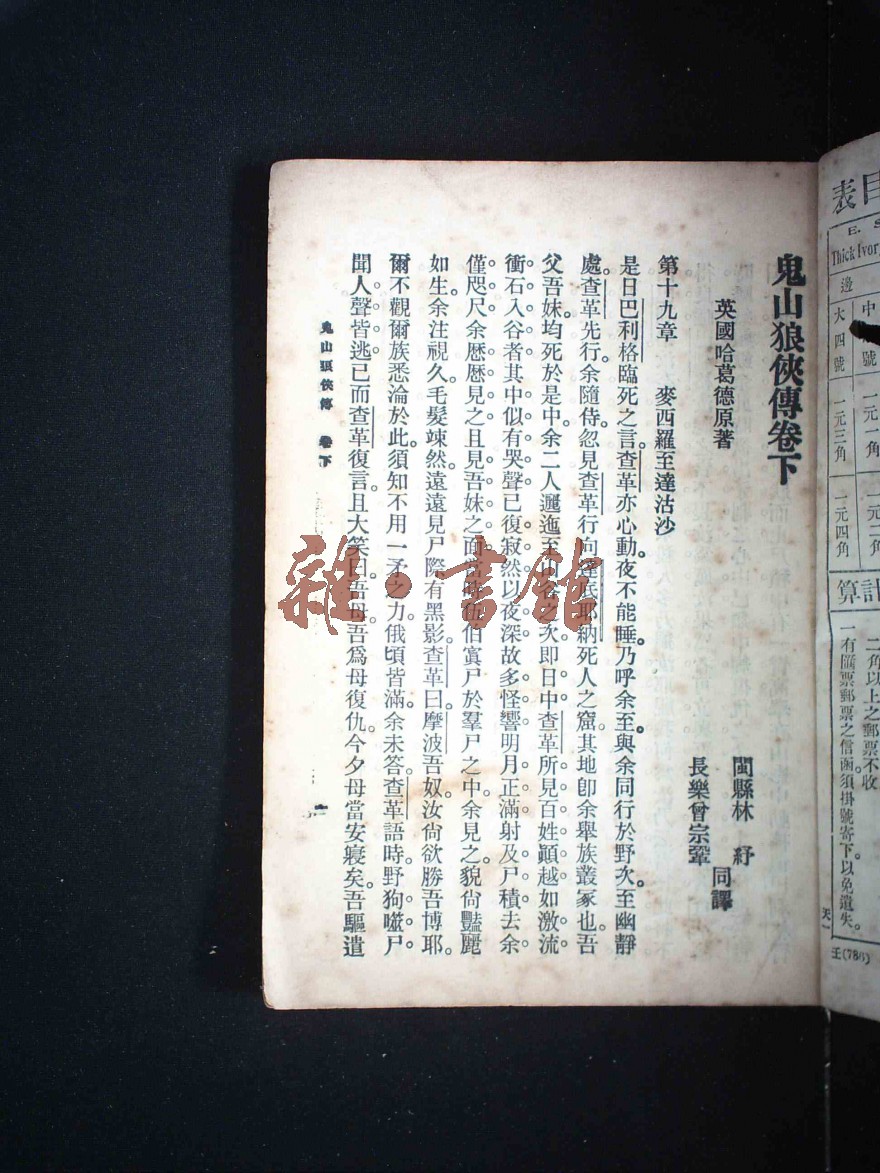 鬼山狼俠傳卷下
英國哈葛德原著
閩縣林 紓
長樂曾宗鞏
同譯
第十九章 麥西羅至達沽沙
是日巴利格臨死之言查革亦心動。夜不能睡。乃呼余至。與余同行於野。次至幽靜
處。查革先行。余隨侍。忽見查革行向達底耶納死人之窟。其地卽余舉族叢冢也。吾
父吾妹均死於是中。余二人邐迤至山谷之次。即日中查革所見百姓顚越如激流
衝石入谷者。其中似有哭聲。已復寂然。以夜深故多怪響。明月正滿。射及尸積。去余
僅咫尺。余歷歷見之。且見吾妹之面。當時伍伯寘尸於羣尸之中。余見之。貌尙豔麗
如生。余注視久。毛髮竦然。遠遠見尸際有黑影。查革曰。摩波吾奴。汝尙欲勝吾博耶。
爾不觀爾族悉淪於此。須知不用一矛之力。俄頃皆滿。余未答查革語時。野狗噬尸
聞人聲皆逃。已而查革復言。且大笑曰。吾母。吾爲母復仇。今夕母當安寢矣。吾驅遣
鬼山狼俠傳 卷下
一
目表
Thick Ivor
邊
大四號 一元三角 一元四角
中 號 一元一角 一元二角
計算
二角以上之郵票不收
一有匯票郵票之信函須掛號寄下以免遺失。
天一
壬(786)
雜·書館